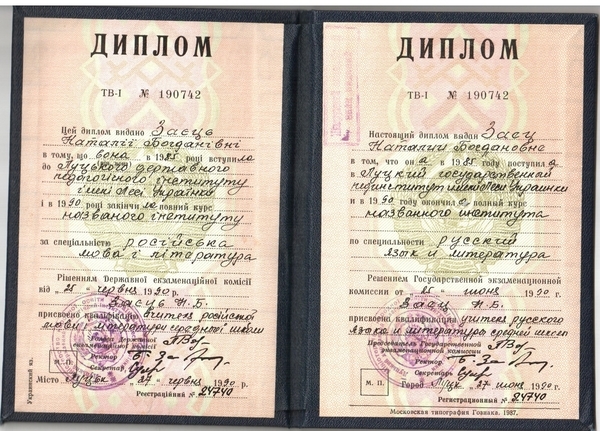 ДИПЛОМ
ТВ-I № 190742
Цей диплом видано Заєць
Наталії Богданівні
в тому, що вона в 1985 році вступила
до Луцького державного
педагогічного інституту
імені Лесі Українки
і в 1990 році закінчила повний курс
названого інституту
за спеціальністю російська
мова і література
Рішенням Державної екзаменаційної комісії
від „25" червня 1990 р.
Заєць Н.Б.
присвоєно кваліфікацію вчителя російської
мови і літератури середньої школи
Голова Державної
екзаменаційної комісії
Ректор
Секретар
М. П.
Місто Луцьк „27" червня 1990 р.
Реєстраційний № 24740
Український яз.
ДИПЛОМ
ТВ-I № 190742
Настоящий диплом выдан Заец
Наталии Богдановне
в том, что она в 1985 году поступила
в Луцкий государственный
пединститут имени Леси Украинки
и в 1990 году окончила полный курс
названного института
по специальности русский
язык и литература
Решением Государственной экзаменационной
комиссии от „25" июня 1990 г.
Заец Н.Б.
присвоена квалификация учителя русского
языка и литературы средней школы
Председатель Государственной
экзаменационной комиссии
Ректор
Секретарь
М. П.
Город Луцк 27 июня 1990 г.
Регистрационный № 24740
Московская типография Гознака. 1987.